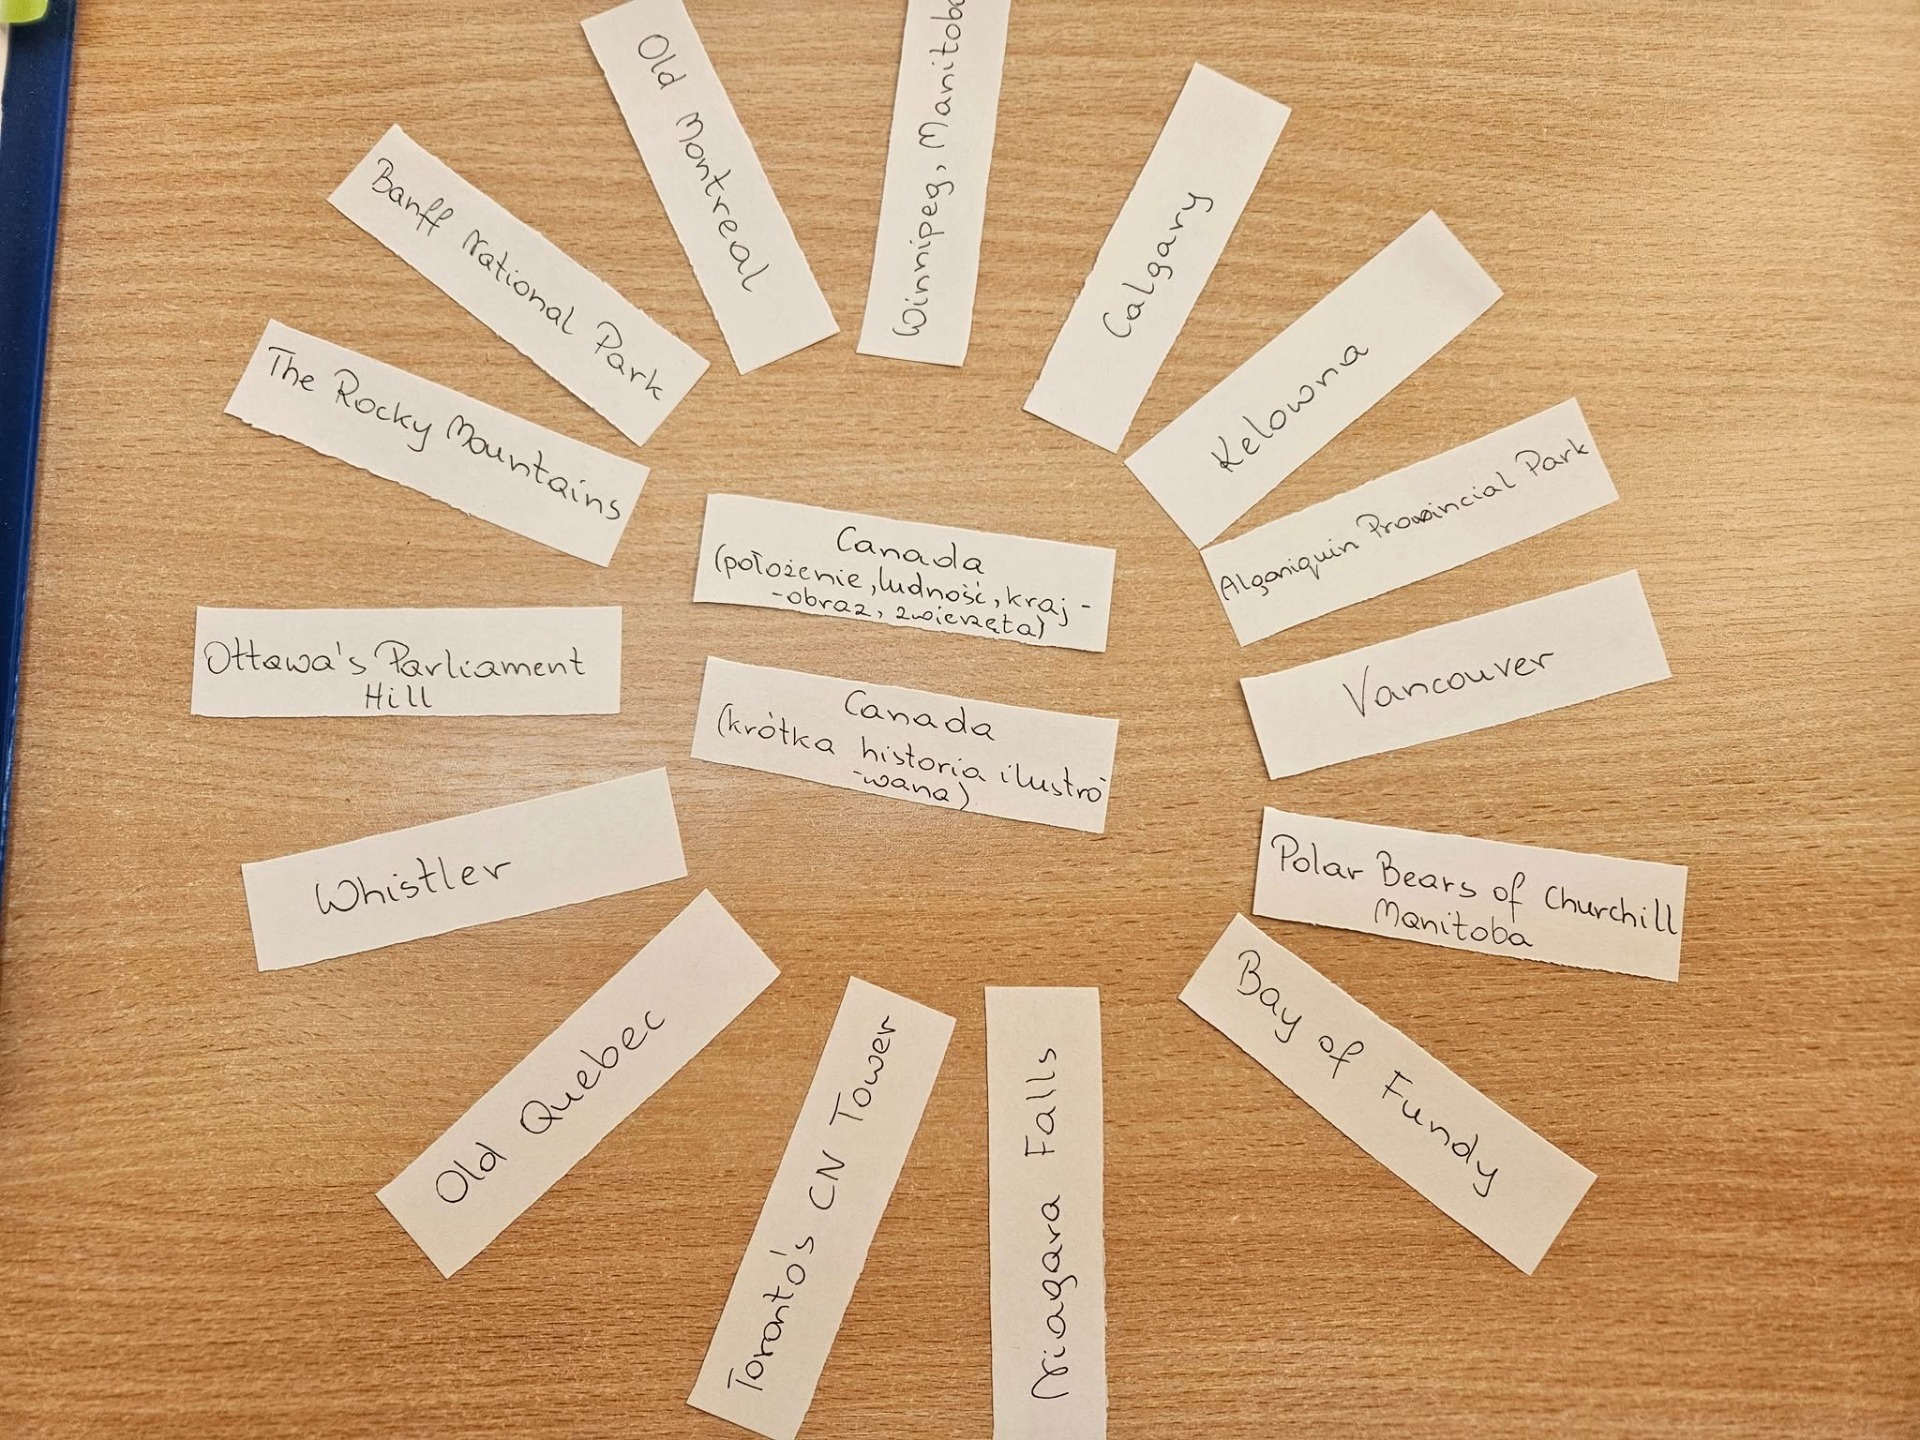 Old Montreal
Winnipeg, Manitoba
Calgary
Banff National Park
Kelowna
The Rocky Mountains
Alganiquin Prowincial Park
Canada
(położenie, ludność, kraj-
-obraz, zwierzęta)
Ottawa's Parliament
Hill
Vancouver
Canada
(krótka historia ilustro
-wana)
Whistler
Polar Bears of Churchill
Manitoba
Old Quebec
Toronto's CN Tower
Niagara Falls
Bay of Fundy